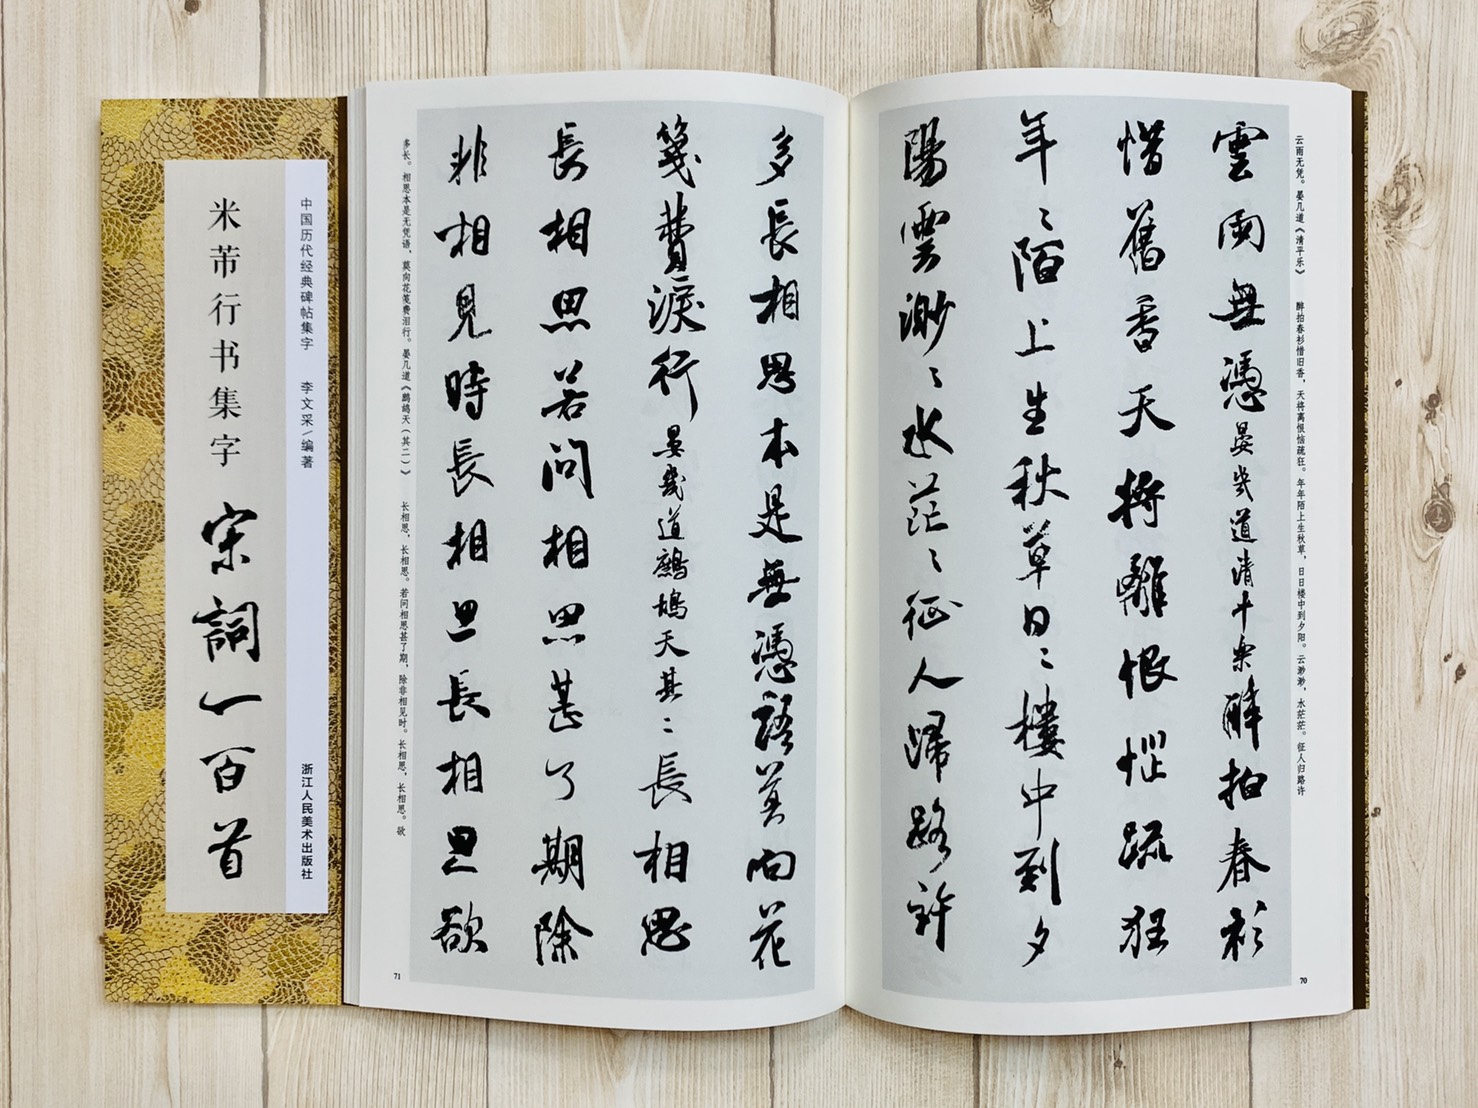 云雨无凭。晏几道《清平乐》 醉拍春衫惜旧香，天将离恨恼疏狂。年年陌上生秋草，日日楼中到夕阳。云渺渺，水茫茫。征人归路许
70
雲雨無憑晏幾道清平樂醉拍春衫
惜舊香天將離恨惱疏狂
年〻陌上生秋草日〻樓中到夕
陽雲渺〻水茫〻征人歸路許
多長相思本是無憑語莫向花
箋費淚行晏幾道鷓鴣天其二長相思
長相思若問相思甚了期除
非相見時長相思長相思欲
多长。相思本是无凭语，莫向花笺费泪行。晏几道《鹧鸪天（其二）》 长相思，长相思。若问相思甚了期，除非相见时。长相思，长相思。欲
71
中国历代经典碑帖集字 李文采/编著 浙江人民美术出版社
米芾行书集字 宋詞一百首